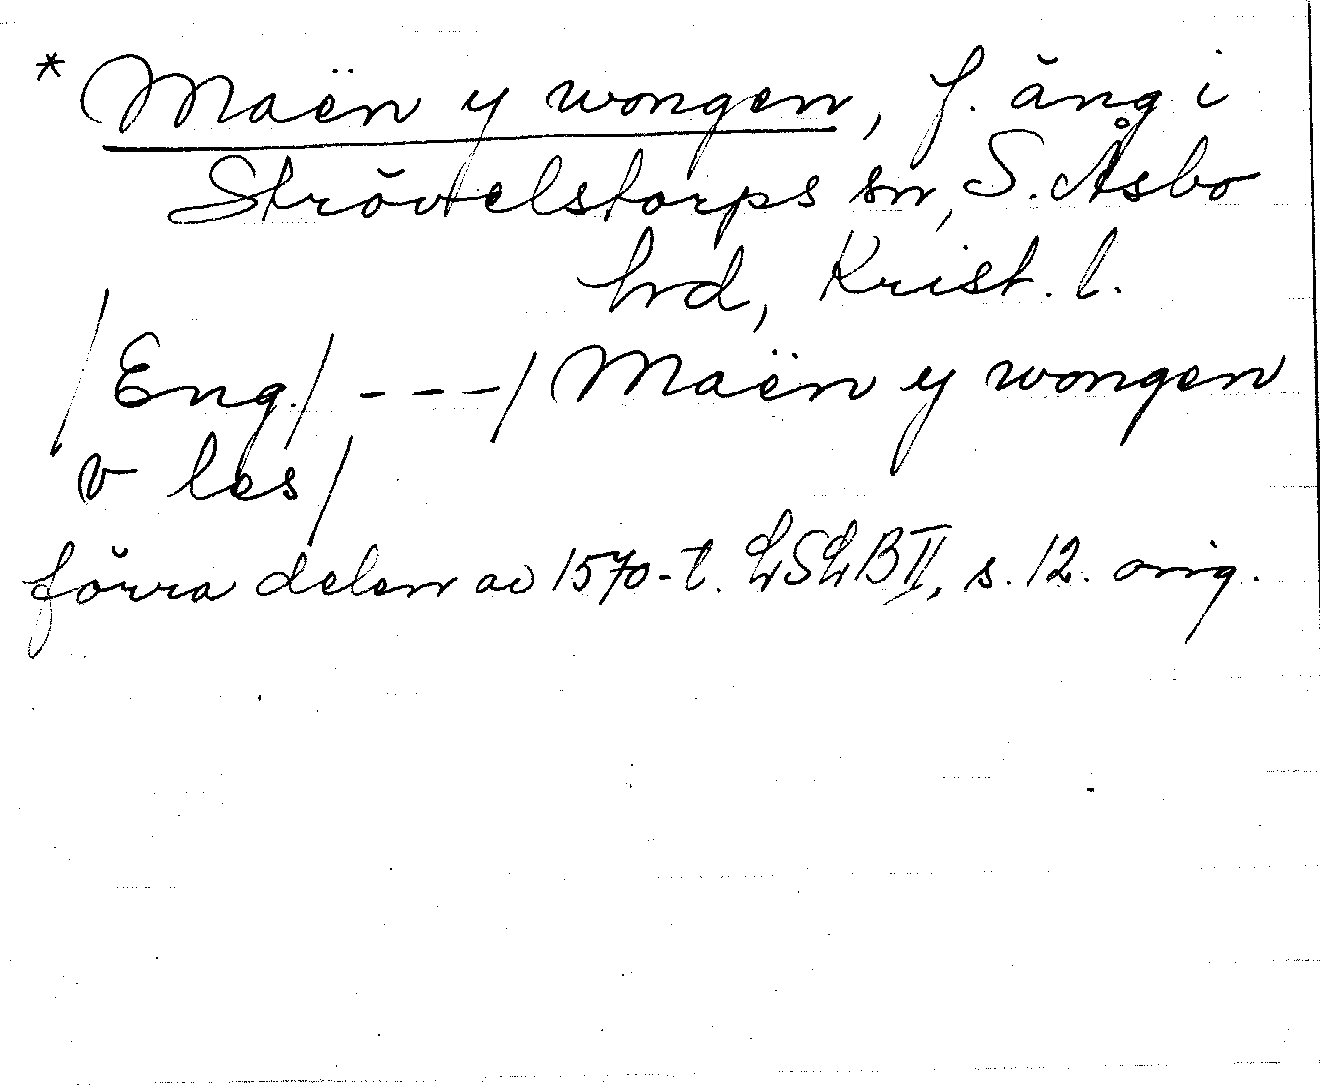 * Maën y wongen, f. äng i
Strövelstorps sn, S. Åsbo
hrd, Krist. l.
/Eng./ - - - / Maën y wongen
v les/
förra delen av 1570-t. LSLB II, s. 12. orig.